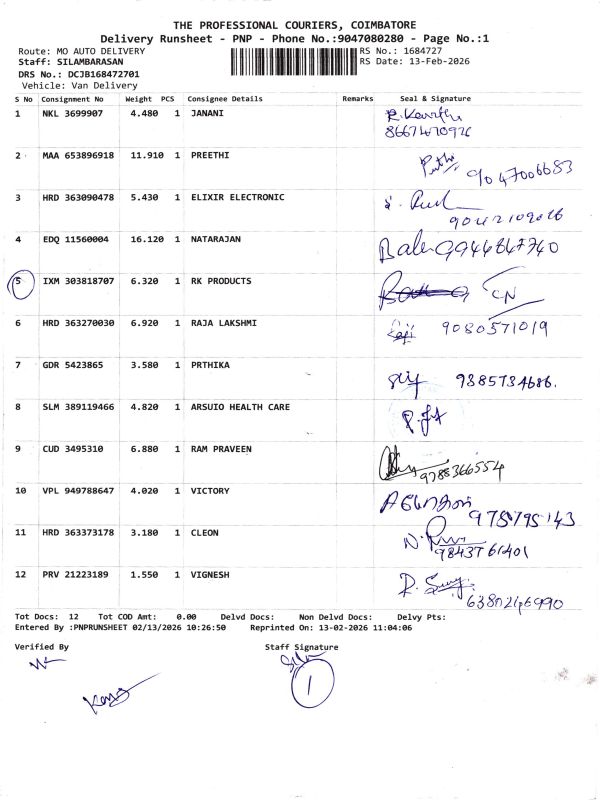 THE PROFESSIONAL COURIERS, COIMBATORE
Delivery Runsheet - PNP - Phone No.:9047080280 - Page No.:1
Route: MO AUTO DELIVERY RS No.: 1684727
Staff: SILAMBARASAN RS Date: 13-Feb-2026
DRS No.: DCJB168472701
Vehicle: Van Delivery
S No Consignment No Weight PCS Consignee Details Remarks Seal & Signature
1 NKL 3699907 4.480 1 JANANI
2 MAA 653896918 11.910 1 PREETHI 9047006683
3 HRD 363090478 5.430 1 ELIXIR ELECTRONIC
4 EDQ 11560004 16.120 1 NATARAJAN
5 IXM 303818707 6.320 1 RK PRODUCTS CN
6 HRD 363270030 6.920 1 RAJA LAKSHMI 9080571019
7 GDR 5423865 3.580 1 PRTHIKA 9385734686.
8 SLM 389119466 4.820 1 ARSUIO HEALTH CARE
9 CUD 3495310 6.880 1 RAM PRAVEEN 9788366554
10 VPL 949788647 4.020 1 VICTORY
11 HRD 363373178 3.180 1 CLEON 9843761401
12 PRV 21223189 1.550 1 VIGNESH
Tot Docs: 12 Tot COD Amt: 0.00 Delvd Docs: Non Delvd Docs: Delvy Pts:
Entered By :PNPRUNSHEET 02/13/2026 10:26:50 Reprinted On: 13-02-2026 11:04:06
Verified By Staff Signature
1